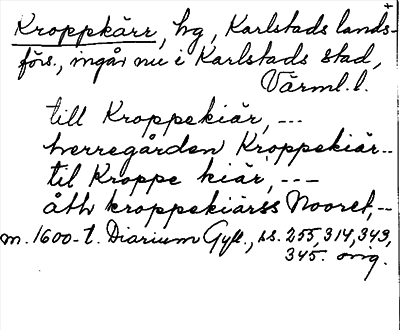 Kroppkärr, hg, Karlstads lands-
förs., ingår nu i Karlstads stad,
Värml. l.
till Kroppekiär, ---
herregården Kroppekiär--
til Kroppe kiär, ---
åth kroppekiärss Nooret,--
m. 1600-t. Diarium Gyll., ss. 255, 314, 349,
345. orig.